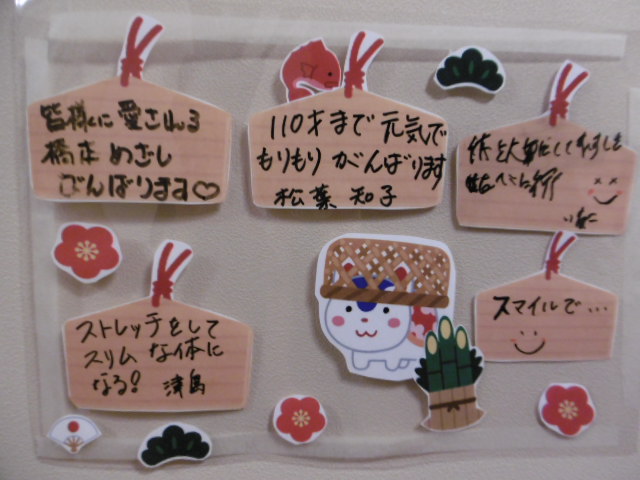 皆様に愛される
橋本めざし
がんばります♡
110才まで元気で
もりもりがんばります
松葉知子
スマイルで…
ストレッチをして
スリムな体に
なる! 津島